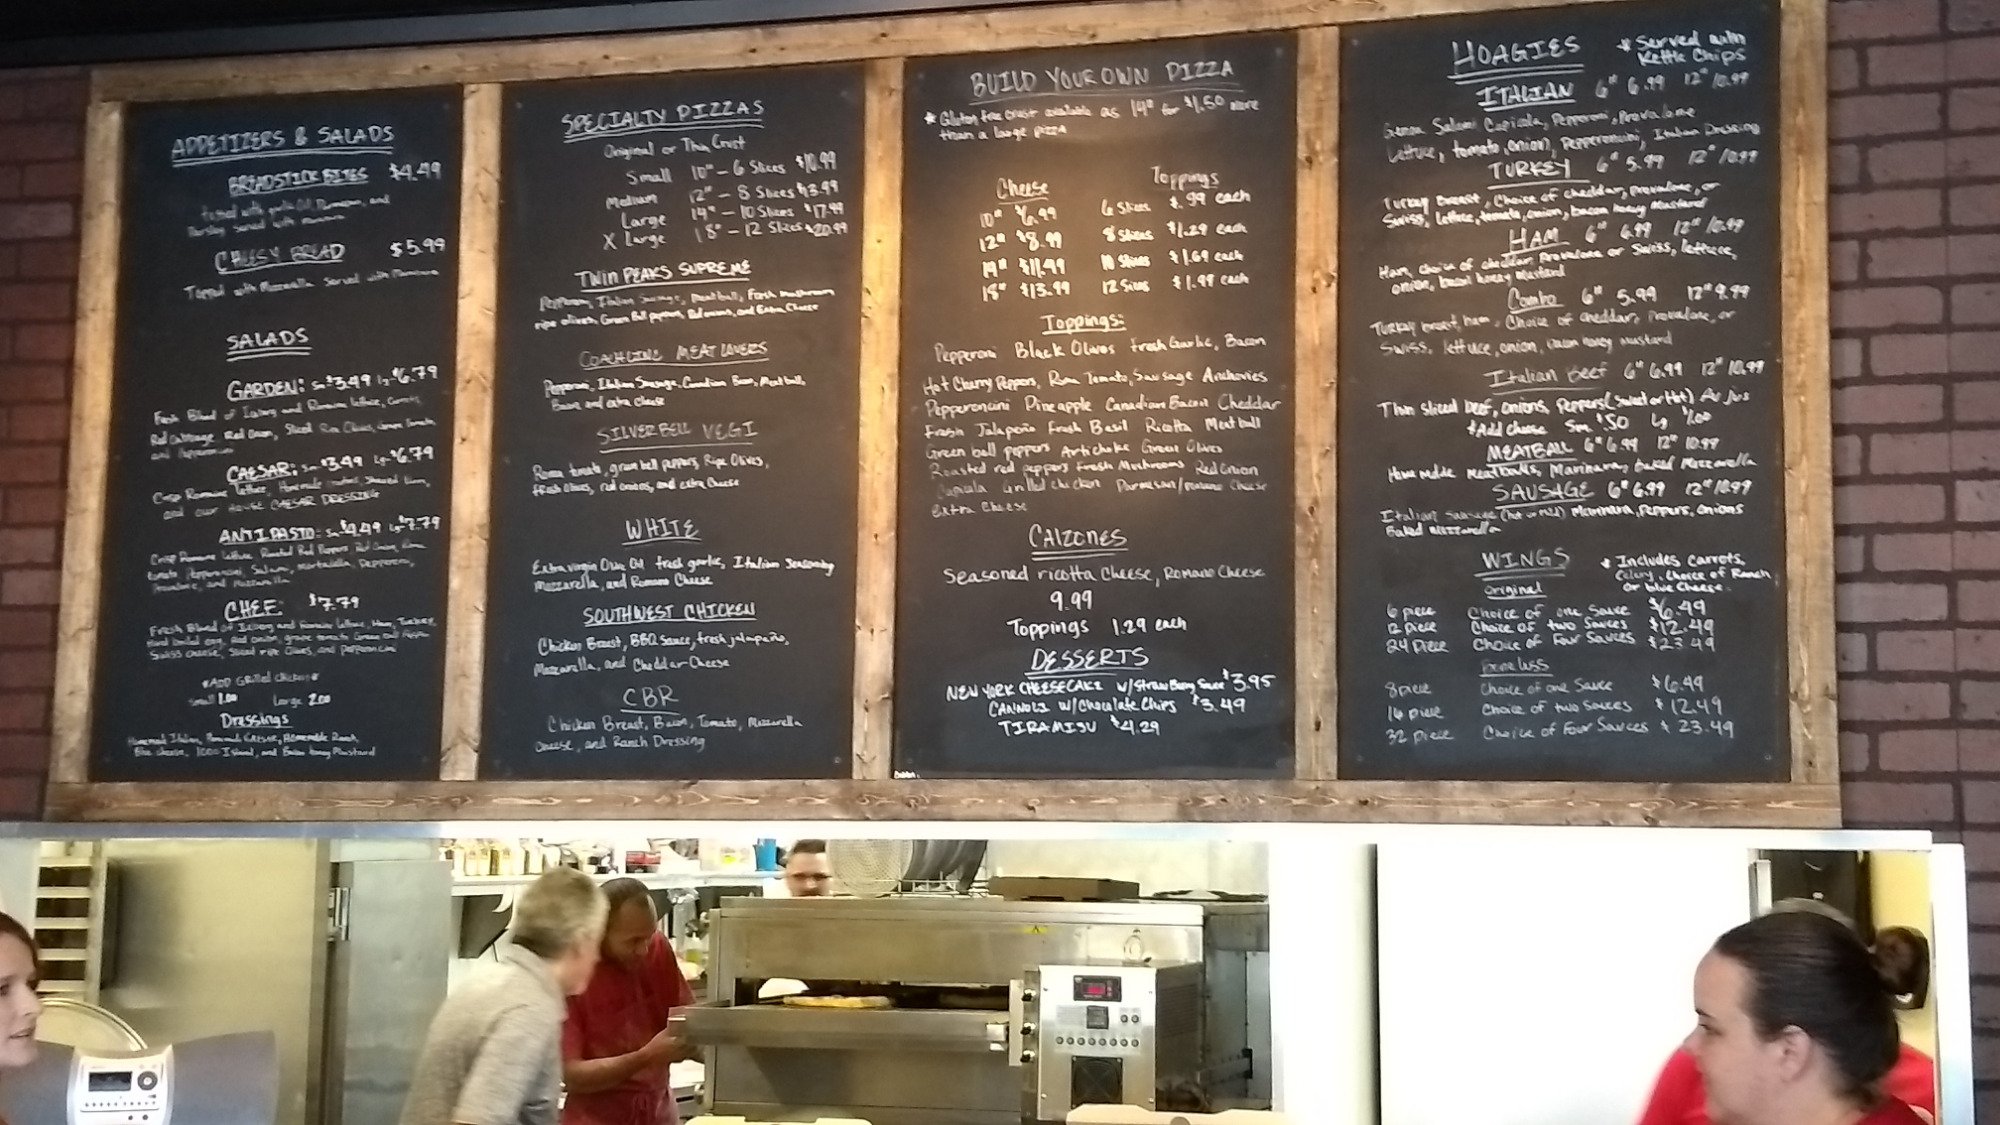 APPETIZERS & SALADS
BREADSTICK BITES $4.49
Parsley served with
CHEESY BREAD $5.99
Topped with Mozzarella Served with Marinara
SALADS
GARDEN: Sm $3.49 lg $6.79
Fresh Blend of Iceberg and Romaine lettuce, Carrots,
Red Cabbage Red Onion, Sliced Ripe Olives,
and Pepperoncini
CAESAR: Sm $3.49 Lg $6.79
Crisp Romaine lettuce, Homemade
and our House CAESAR DRESSING
ANTIPASTO: Sm $4.49 Lg $7.79
Crisp Romaine lettuce, Roasted Red Peppers Red Onion, Roma
tomato Pepperoncini Salami, mortadella, Pepperoni,
Provolone, and Mozzarella
CHEF: $7.79
Fresh Blend of Iceberg and Romaine lettuce, Ham, Turkey,
Hard boiled egg, Red onion, grape tomato Green Bell Pepper
Swiss cheese, Sliced ripe Olives, and pepperoncini
*ADD Grilled chicken*
Small 1.00 Large 2.00
Dressings
Homemade Italian, Caesar, Homemade Ranch,
Blue cheese, 1000 Island, and Bacon honey Mustard
SPECIALTY PIZZAS
Original or Thin Crust
Small 10" - 6 Slices $10.99
Medium 12" - 8 Slices $13.99
Large 14" - 10 Slices $17.99
X Large 18" - 12 Slices $20.99
TWIN PEAKS SUPREME
Pepperoni, Italian Sausage, Meatball, Fresh mushroom
ripe olives, Green Bell peppers, Red onions, and Extra Cheese
COACHLINE MEAT LOVERS
Pepperoni, Italian Sausage, Canadian Bacon, Meatball,
Bacon and extra Cheese
SILVERBELL VEGI
Roma tomato, green bell peppers, Ripe Olives,
red onions, and extra Cheese
WHITE
Extra virgin Olive Oil fresh garlic, Italian Seasoning
Mozzarella, and Romano Cheese
SOUTHWEST CHICKEN
Chicken Breast, BBQ Sauce, fresh jalapeño,
Mozzarella, and Cheddar Cheese
CBR
Chicken Breast, Bacon, Tomato, Mozzarella
Cheese, and Ranch Dressing
BUILD YOUR OWN PIZZA
* Gluten free crust available as 14" for $1.50 more
than a large pizza
Cheese Toppings
10" $6.99 6 Slices $.99 each
12" $8.99 8 Slices $1.29 each
14" $11.99 10 Slices $1.69 each
18" $13.99 12 Slices $1.99 each
Toppings:
Pepperoni Black Olives fresh Garlic, Bacon
Hot Cherry Peppers, Roma Tomato, Sausage Anchovies
Pepperoncini Pineapple Canadian Bacon Cheddar
Fresh Jalapeño Fresh Basil Ricotta Meatball
Green bell peppers Artichoke Green Olives
Roasted red peppers Fresh Mushrooms Red Onion
Capicola Grilled Chicken Parmesan/romano Cheese
Extra Cheese
CALZONES
Seasoned ricotta Cheese, Romano Cheese
9.99
Toppings 1.29 each
DESSERTS
NEW YORK CHEESECAKE w/Strawberry Sauce $3.95
CANNOLI w/Chocolate Chips $3.49
TIRAMISU $4.29
HOAGIES * Served with
Kettle Chips
ITALIAN 6" 6.99 12" 10.99
Genoa Salami Capicola, Pepperoni, Provolone
Lettuce, tomato, onion, Pepperoncini, Italian Dressing
TURKEY 6" 5.99 12" 10.99
Turkey breast, Choice of cheddar, provolone, or
Swiss, lettuce, tomato, onion, bacon honey Mustard
HAM 6" 6.99 12" 10.99
Ham, choice of cheddar Provolone or Swiss, lettuce,
onion, bacon honey Mustard
Combo 6" 5.99 12" 9.99
Turkey breast, ham, Choice of cheddar, Provolone, or
Swiss, lettuce, onion, bacon honey mustard
Italian Beef 6" 6.99 12" 10.99
Thin sliced beef, onions, peppers (Sweet or Hot) Au jus
*Add cheese Sm $.50 Lg 1.00
MEATBALL 6" 6.99 12" 10.99
Home made meatballs, Marinara, baked Mozzarella
SAUSAGE 6" 6.99 12" 10.99
Italian Sausage (hot or mild) Marinara, Peppers, onions
Baked Mozzarella
WINGS * Includes Carrots,
Celery, Choice of Ranch
or blue Cheese.
Original
6 piece Choice of one Sauce $6.49
12 piece Choice of two Sauces $12.49
24 piece Choice of Four Sauces $23.49
Boneless
8 piece Choice of one Sauce $6.49
16 piece Choice of two Sauces $12.49
32 piece Choice of Four Sauces $23.49